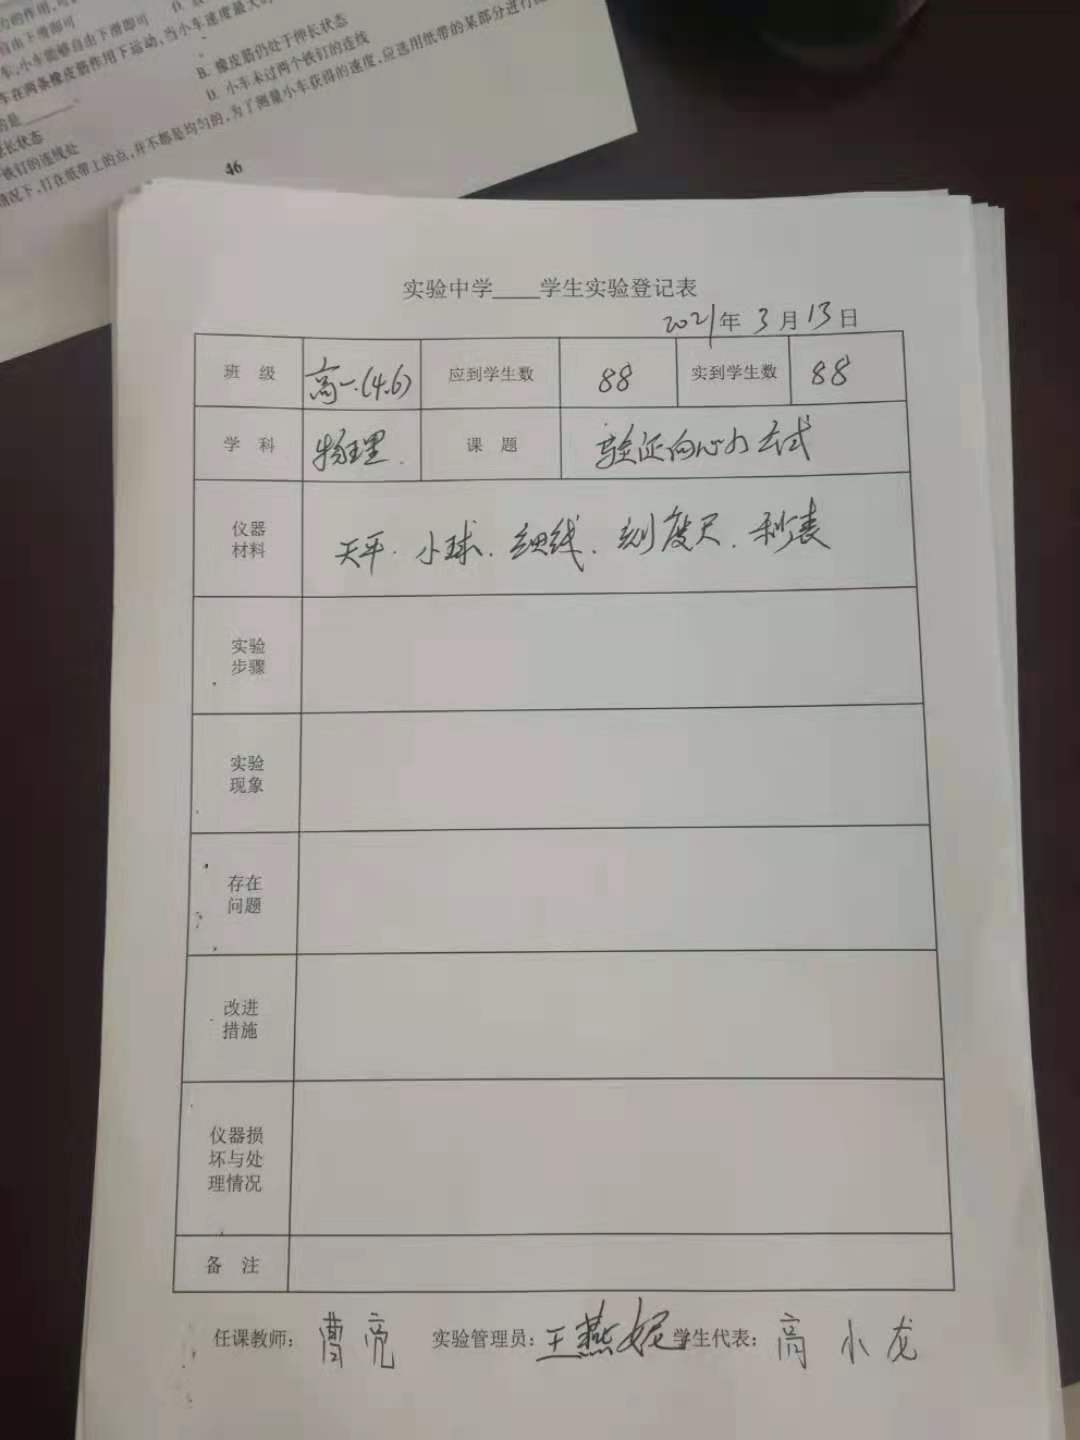 自由下滑即可
车,小车能够自由下滑即可
车在两条橡皮筋作用下运动,当小车速度最大时
B. 橡皮筋仍处于伸长状态
D. 小车未过两个铁钉的连线
铁钉的连线处
情况下,打在纸带上的点,并不都是均匀的,为了测量小车获得的速度,应选用纸带的某部分进行
46
实验中学____学生实验登记表
2021年 3月 13日
班 级 高一.(4.6) 应到学生数 88 实到学生数 88
学 科 物理. 课 题 验证向心力公式
仪器
材料
天平. 小球. 细线. 刻度尺. 秒表
实验
步骤
实验
现象
存在
问题
改进
措施
仪器损
坏与处
理情况
备 注
任课教师: 曹亮 实验管理员: 王燕妮 学生代表: 高小龙